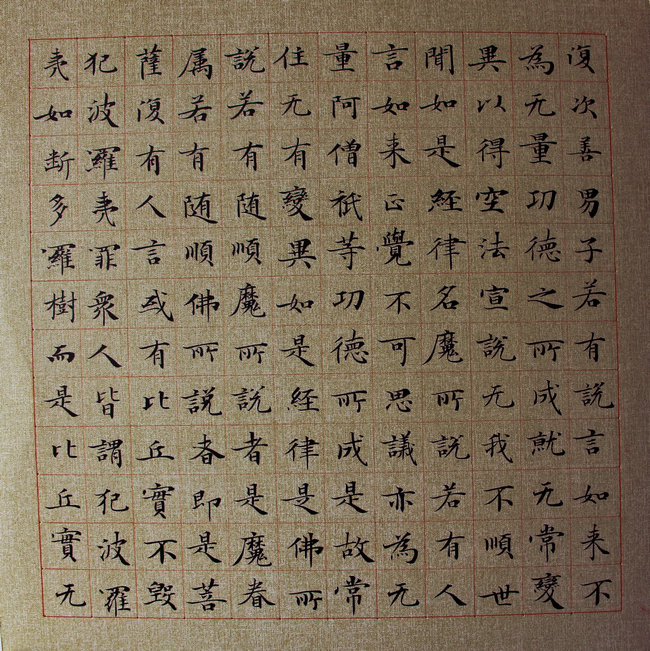 復次善男子若有說言如来不
為无量功德之所成就无常變
異以得空法宣說无我不順世
聞如是経律名魔所說若有人
言如来正覺不可思議亦為无
量阿僧祇等功德所成是故常
住无有變異如是経律是佛所
說若有随順魔所說者是魔眷
属若有随順佛所說者即是菩
薩復有人言或有比丘實不毀
犯波羅夷罪眾人皆謂犯波羅
夷如断多羅樹而是比丘實无